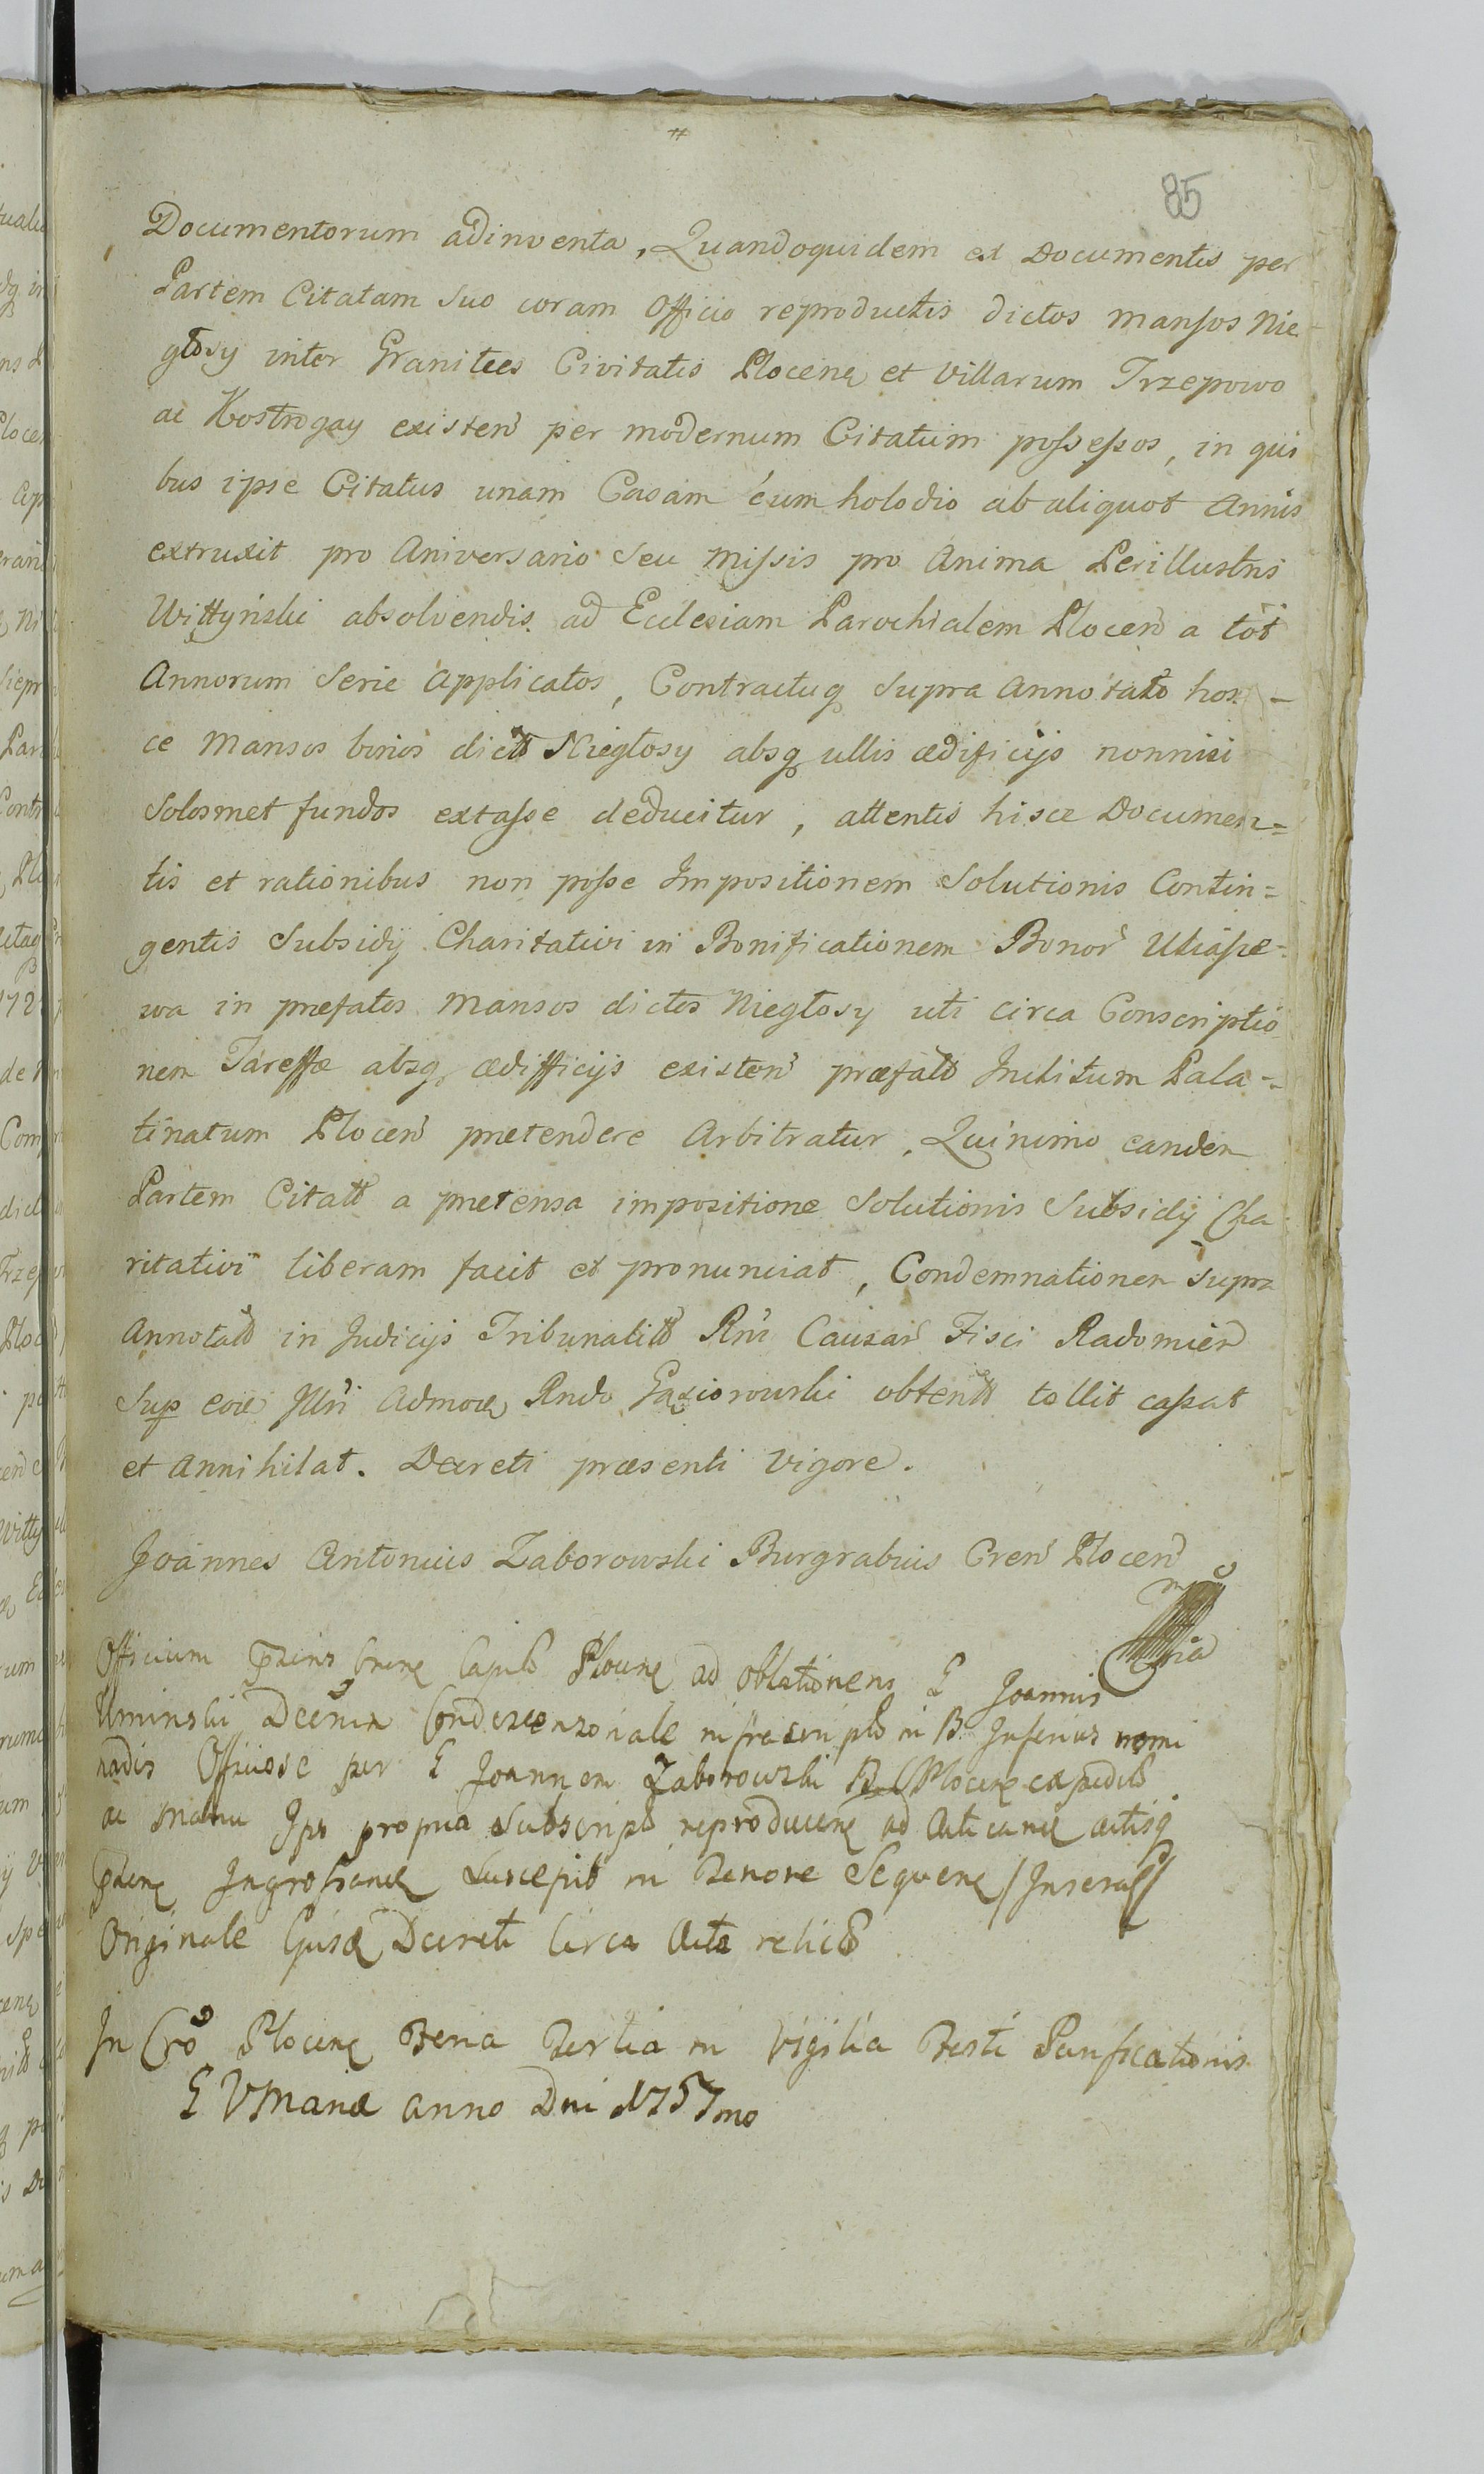 85
Documentorum adinventa, Quandoquidem ex Documentis per
Partem Citatam suo coram Officio reproductis dictos mansos Nie
głosy inter Granities Civitatis Plocen et Villarum Trzepowo
ac Kostrogay existen per modernum Citatum possessos, in qui
bus ipse Citatus unam Casam cum holodio ab aliquot Annis
extruxit pro Aniversario seu missis pro Anima Perillustris
Wittyński absolvendis ad Ecclesiam Parochialem Plocen a tot
Annorum serie applicatos, Contractuq supra Annotato hos-
ce Mansos binos dictos Niegłosy absq ullis ædificijs nonnisi
solosmet fundos extasse deducitur, attentis hisce Documen=
tis et rationibus non posse Impositionem Solutionis Contin=
gentis Subsidij Charitativi in Bonificationem Bonor
wa in præfatos Mansos dictos Niegłosy uti circa Conscriptio
nem Tareffæ absq ædifficijs existen præfato Inclitum Pala-
tinatum Plocen prætendere Arbitratur, Quinimo eandem
Partem Citat a prætensa impositione Solutionis Subsidij Cha
ritativi liberam facit et pronunciat, Condemnationem supra
Annotat in Judicijs Tribunalit Rni Causar Fisci Radomien
Sup eoæ Illri Admod Rndo Gąsiorowski obtent tollit cassat
et Annihilat. Decreti præsenti vigore.
Joannes Antonius Zaborowski Burgrabius Cren Plocen
mp
Officium ad Oblationem G Joannis
Uminski Condescensionale in B. Inferius nomi
natis Officiose per G Joannem Zaborowski B C Plocen expedit
ac Manu propria Subscript reproducen ad actisq
Ingrossand suscepit in Tenore Sequen
Originale Decreti circa Acta relict
In Cro Plocen Feria Tertia in Vigilia Festi Purificationis
B V Mariæ anno Dni 1757mo